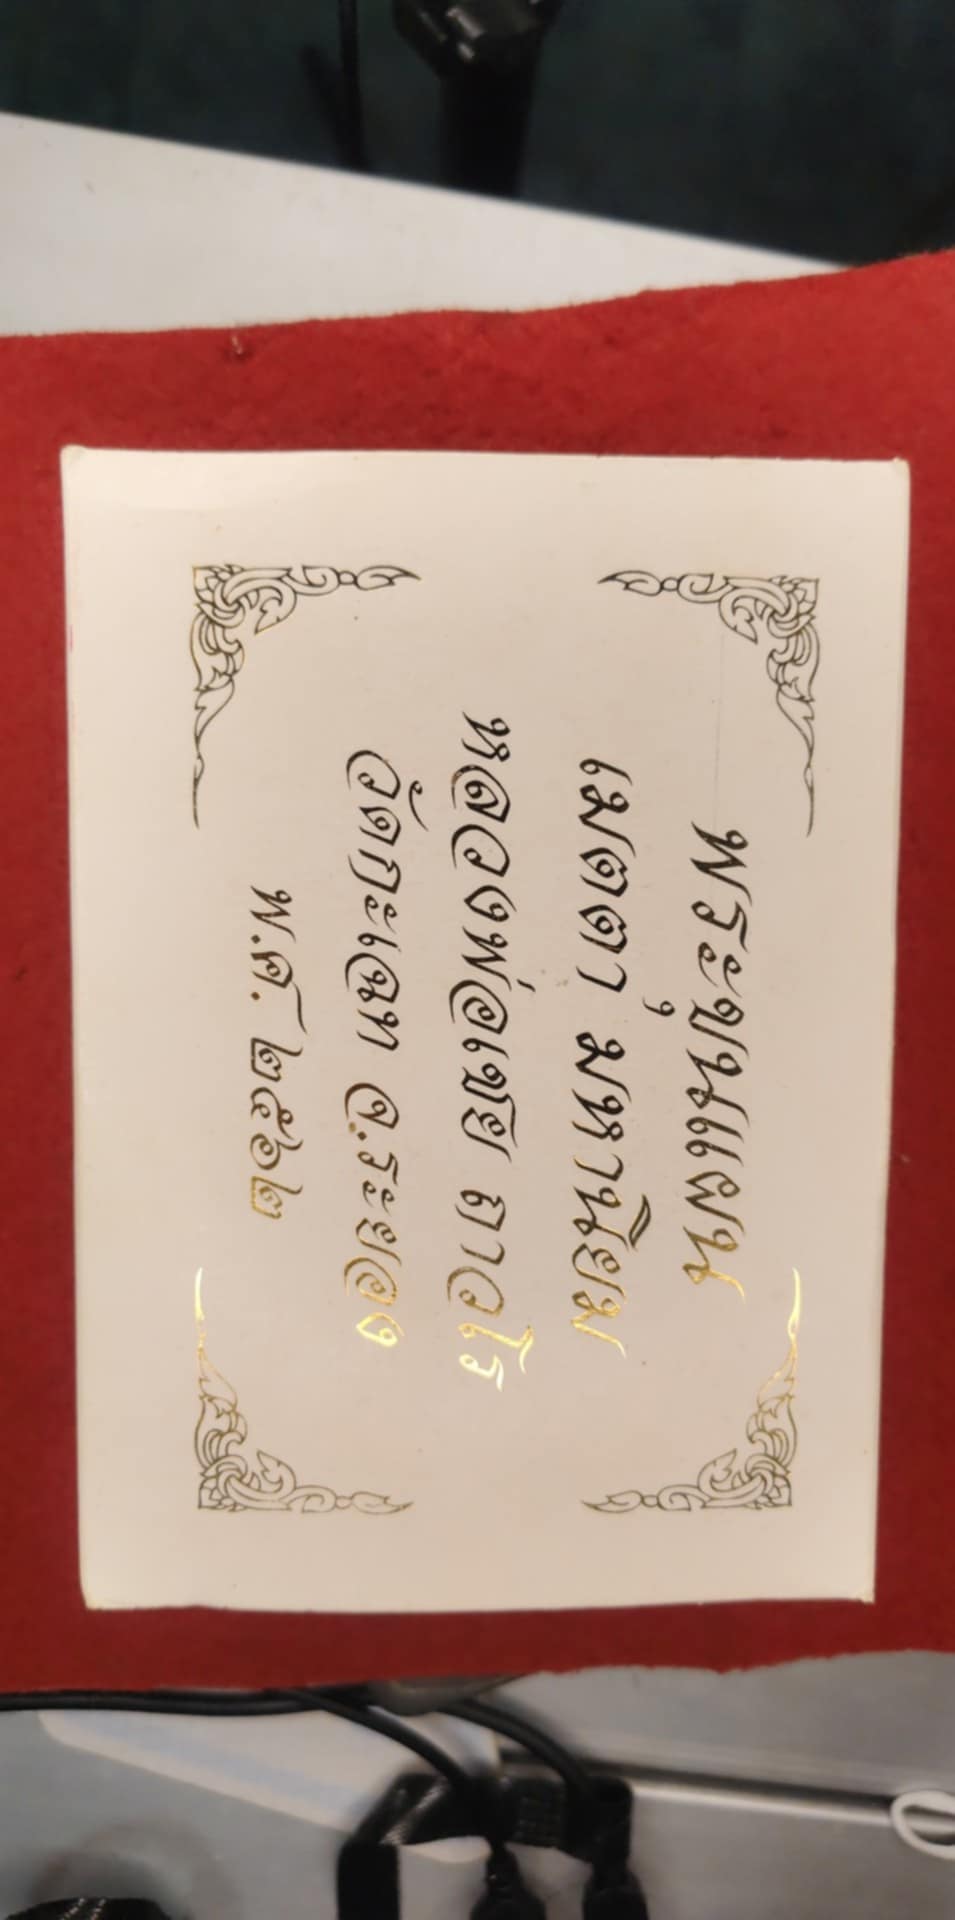 พระขุนแผน
เมตตา มหานิยม
หลวงพ่อเชย ถาวโร
วัดกะเฉท จ.ระยอง
พ.ศ. ๒๕๖๒